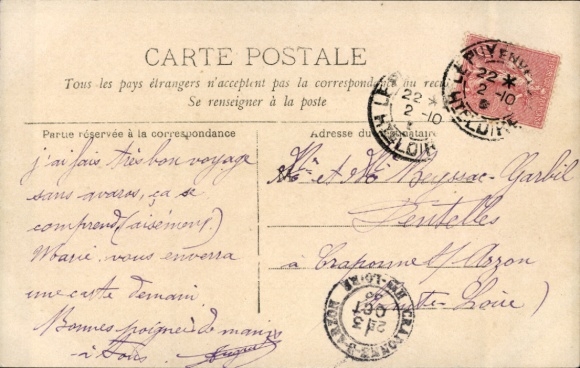 CARTE POSTALE
Tous les pays étrangers n'acceptent pas la correspondance au recto
Se renseigner à la poste
Partie réservée à la correspondance
Adresse du destinataire
j'ai fait très bon voyage
sans avaros, ça se
comprend (aisément)
Marie vous enverra
une carte demain
Bonnes poignées de mains
à Tous
et Beyssac-Garbil
Dentelles
à Craponne s/ Arzon
Loire)
LE PUY EN VELAY
22 *
2 -10
HTE LOIRE
LE
22 *
2 -10
HTE LOIRE
CRAPONNE-S-ARZON
3
OCT
HTE-LOIRE